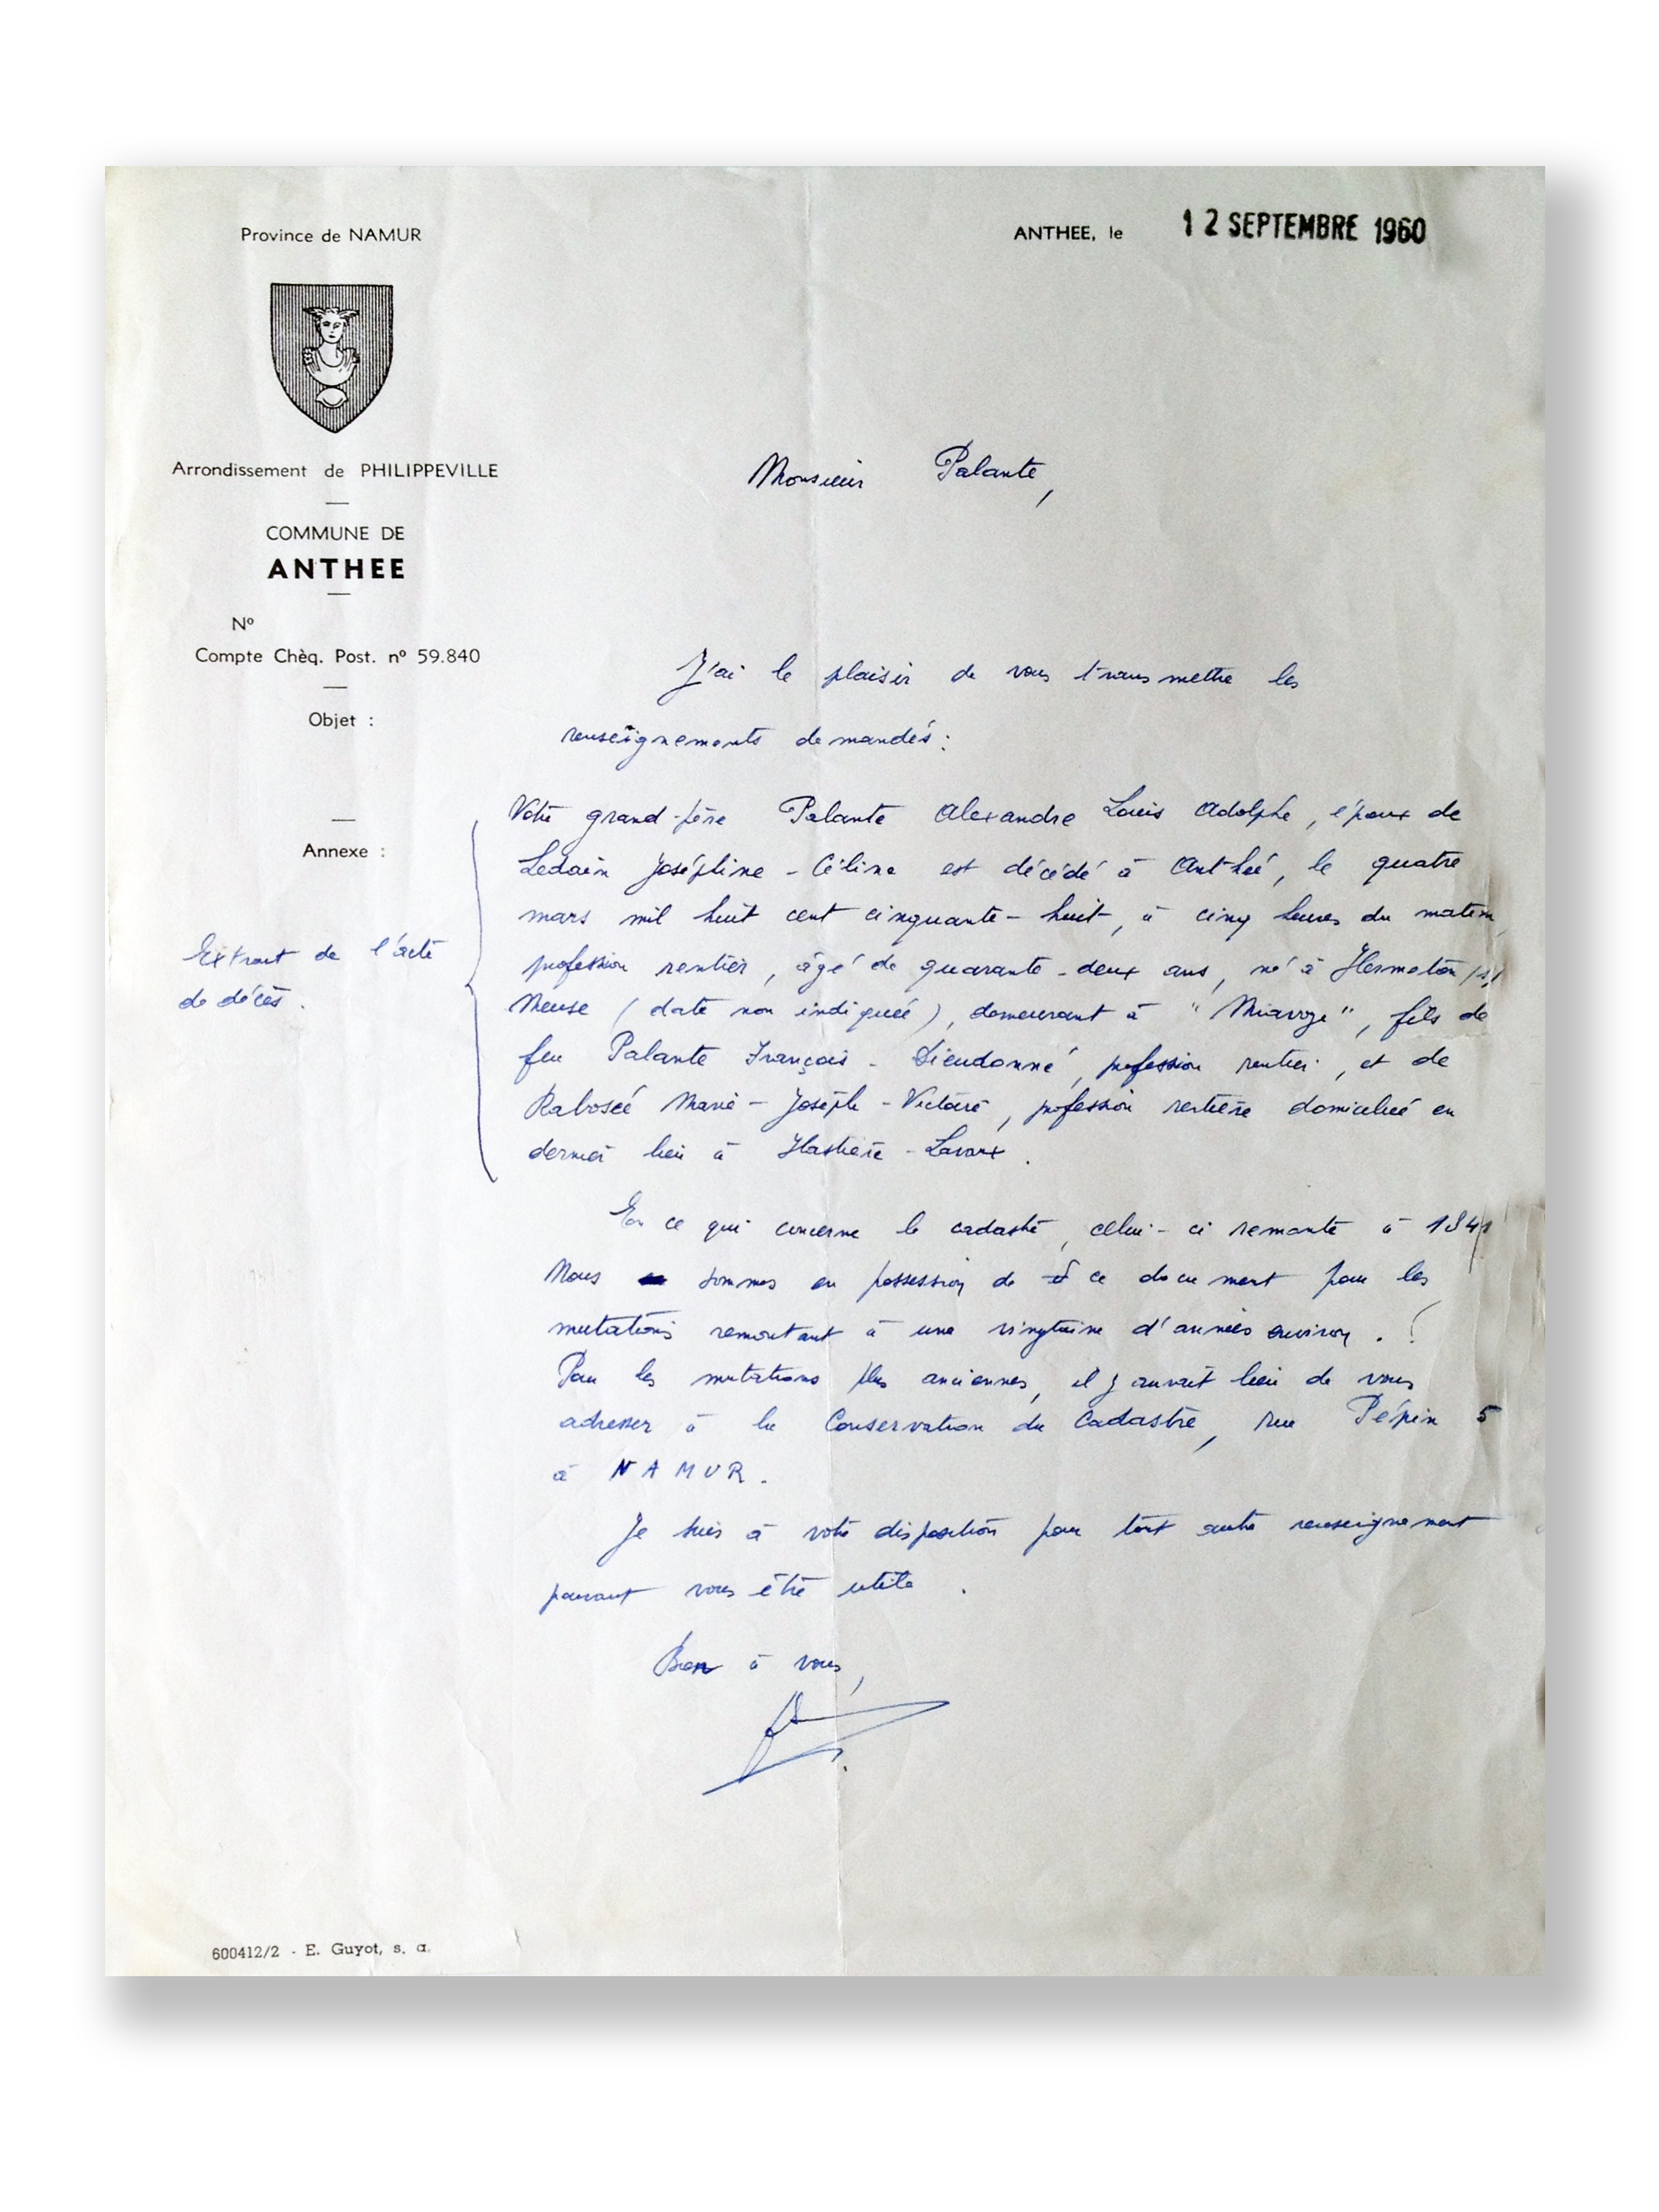 Province de NAMUR
ANTHEE, le 12 SEPTEMBRE 1960
Arrondissement de PHILIPPEVILLE
COMMUNE DE
ANTHEE
Nº
Compte Chèq. Post. nº 59.840
Objet :
Annexe :
Extrait de l'acte
de décès.
Monsieur Palante,
J'ai le plaisir de vous transmettre les
renseignements demandés :
Votre grand-père Palante Alexandre Louis Adolphe, époux de
Ledain Joséphine - Céline est décédé à Anthée, le quatre
mars mil huit cent cinquante-huit, à cinq heures du matin,
profession rentier, âgé de quarante-deux ans, né à Hermeton /s/
Meuse (date non indiquée), demeurant à "Miavoye", fils de
feu Palante François - Dieudonné, profession rentier, et de
Rabosée Marie - Josèph - Victoire, profession rentière domiciliée en
dernier lieu à Hastière - Lavaux.
En ce qui concerne le cadastre, celui-ci remonte à 1841
Nous sommes en possession de ce document pour les
mutations remontant à une vingtaine d'années environ.
Pour les mutations plus anciennes, il y aurait lieu de vous
adresser à la Conservation du Cadastre, rue Pépin 5
à NAMUR.
Je suis à votre disposition pour tout autre renseignement
pouvant vous être utile.
Bien à vous,
600412/2 - E. Guyot, s. a.